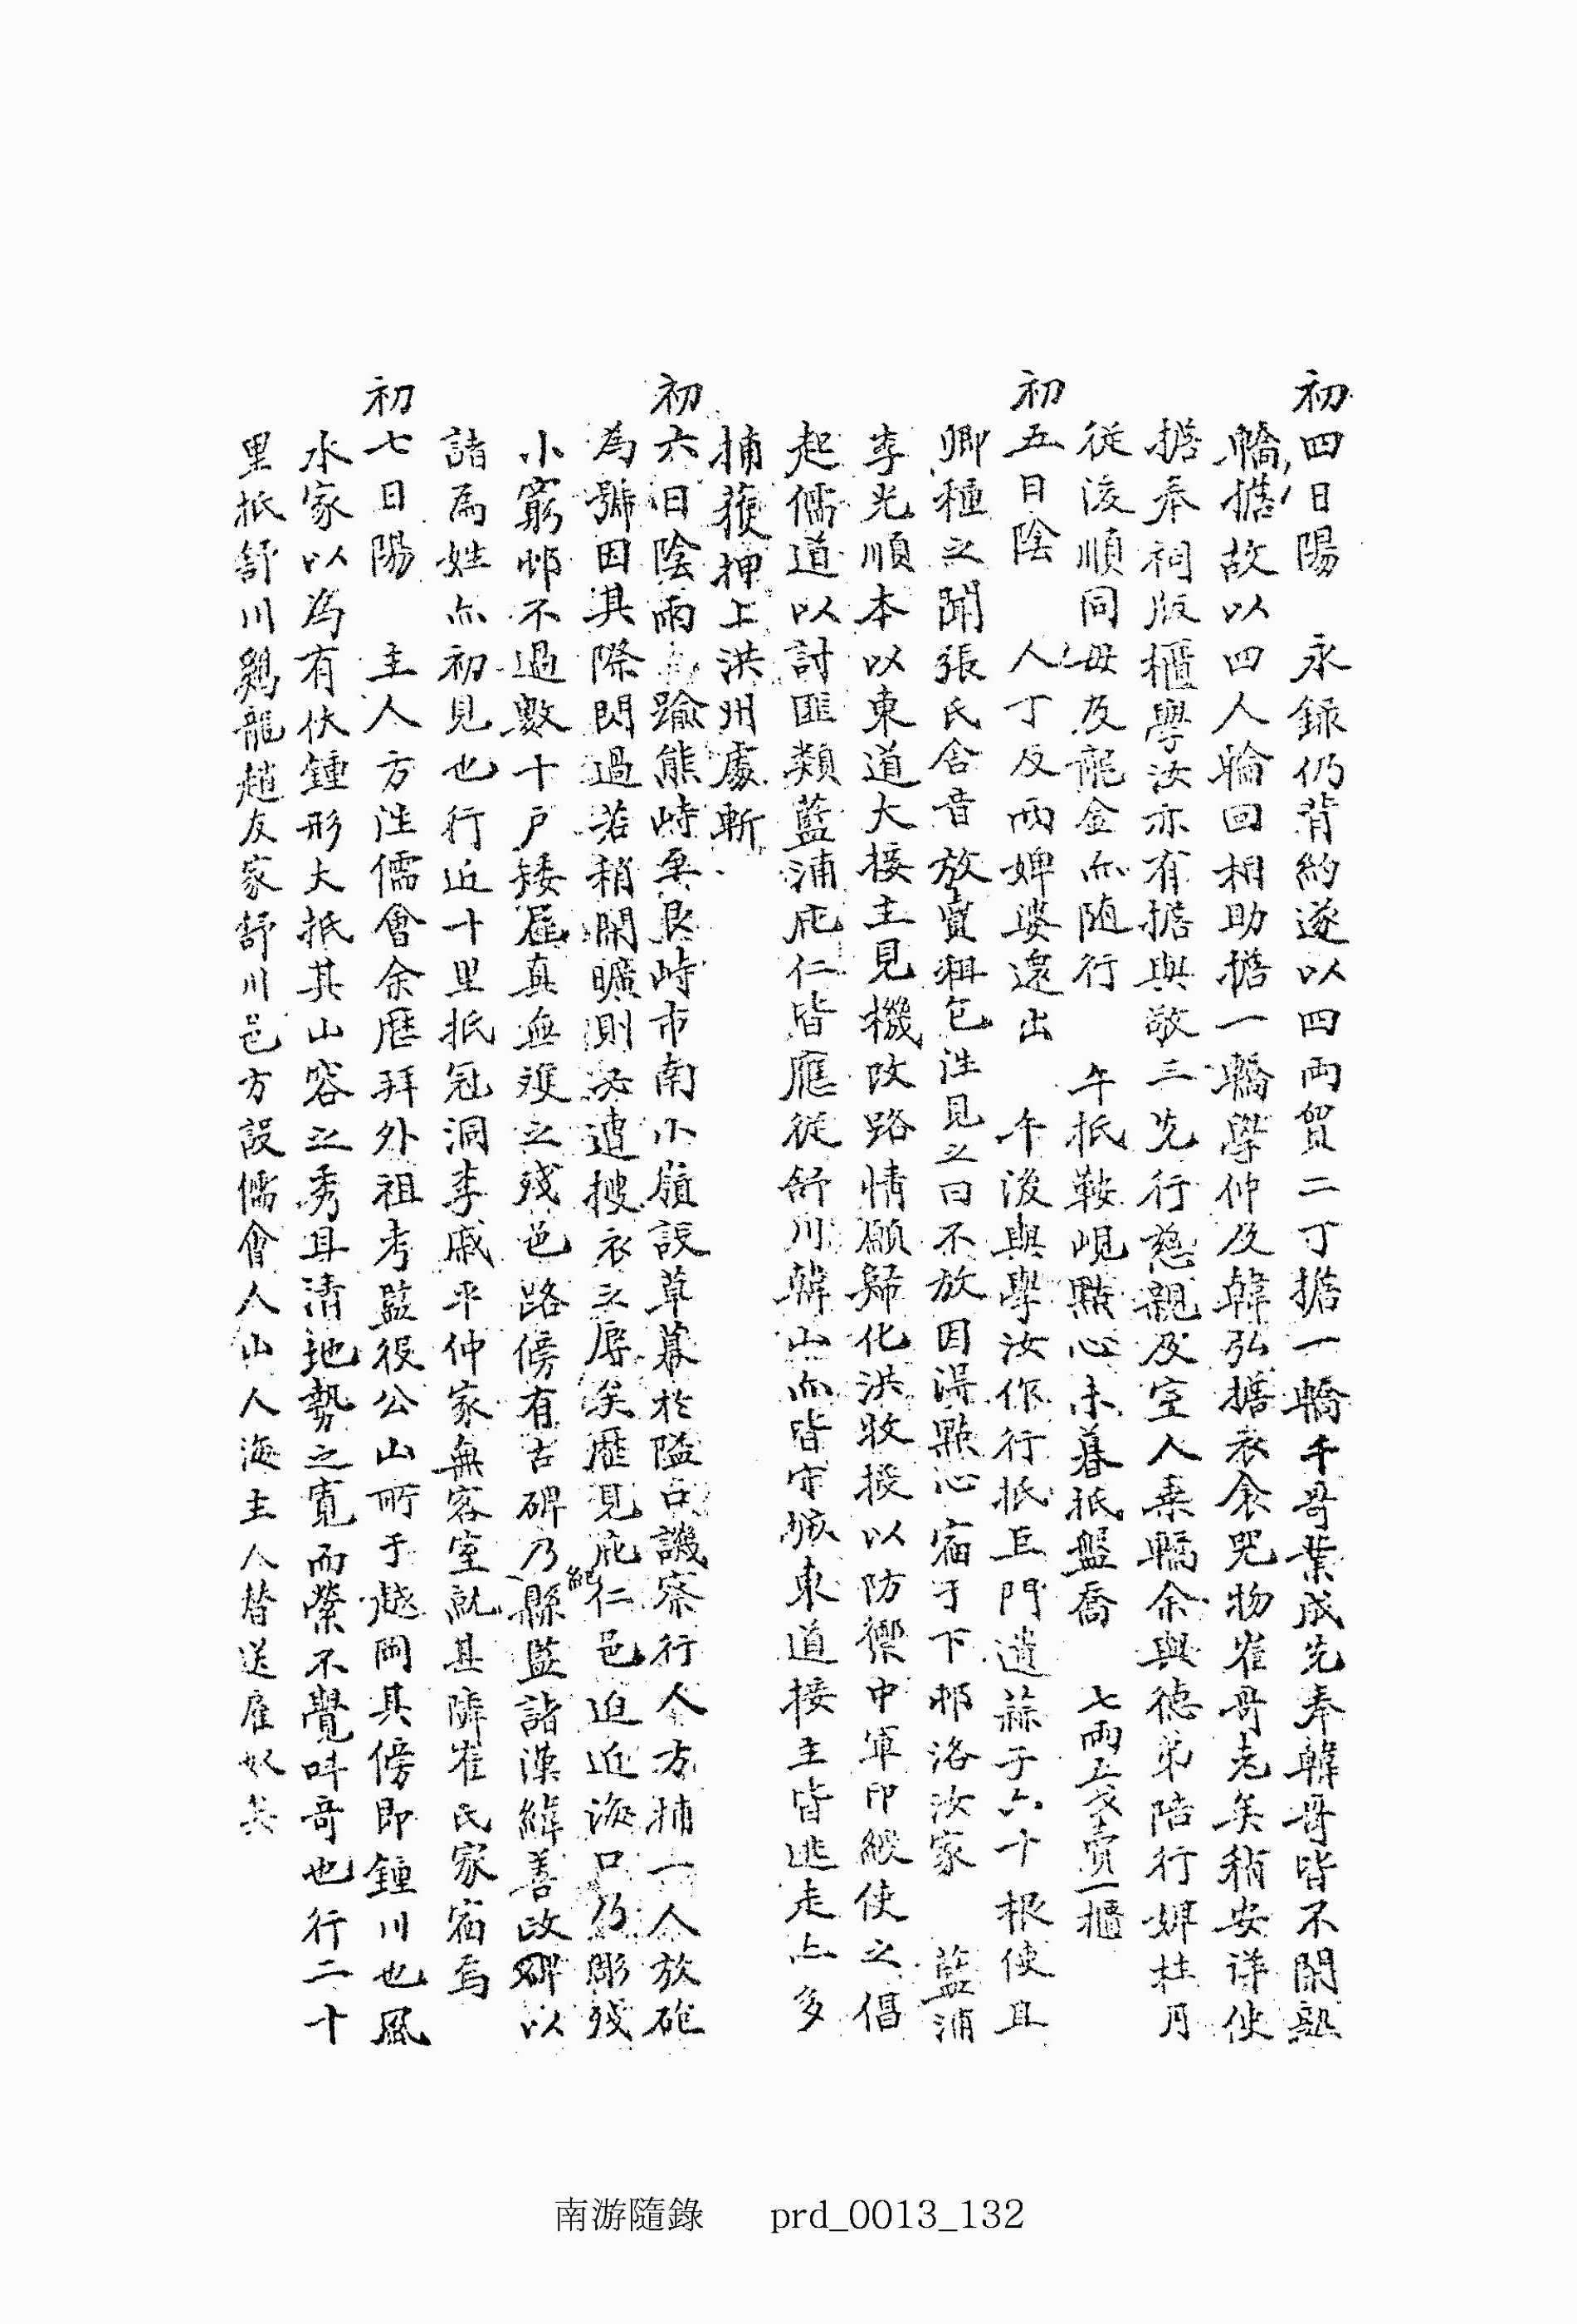 初四日陽 永録仍背約遂以四兩貿二丁擔一轎千哥業成先奉韓哥皆不閑熟
轎擔故以四人輪回相助擔一轎學仲及韓弘擔衣衾咒物崔哥老矣稍安詳使
擔奉祠版櫃學汝亦有擔與敬三先行慈親及室人乘轎余與德弟陪行婢桂月
從後順同母及龍金亦随行 午抵鞍峴點心未暮抵盤喬 七兩五戔賣一櫃
初五日陰 人丁反兩婢婆還出 午後與學汝作行抵巨門遣蒜于六十根使且
卿種之聞張氏舍音放賣租包往見之曰不放因淂點心宿于下邨洛汝家 藍浦
李光順本以東道大接主見機改路情願歸化洪牧授以防禦中軍印縱使之倡
起儒道以討匪類藍浦庇仁皆應從舒川韓山亦皆守城東道接主皆逃走上多
捕獲押上洪州處斬
初六日陰雨 踰熊峙至艮峙市南小嶺設草幕於隘口譏察行人方捕一人放砲
為號因其際閃過若稍閑曠則必遭搜衣之辱矣歷見庇仁邑迫近海口乃彫殘
小窮邨不過數十戶矮屋真無雙之殘邑路傍有古碑乃縣監諧漢緯善政碑以
諸爲姓亦初見也行近十里抵冠洞李戚平仲家無客室就其隣崔氏家宿焉
初七日陽 主人方往儒會余歷拜外祖考監役公山所于越岡其傍即鍾川也風
水家以為有伏鍾形大抵其山容之秀耳清地勢之寬而縈不覺叫奇也行二十
里抵舒川鷄龍趙友家舒川邑方設儒會人山人海主人替送雇奴矣